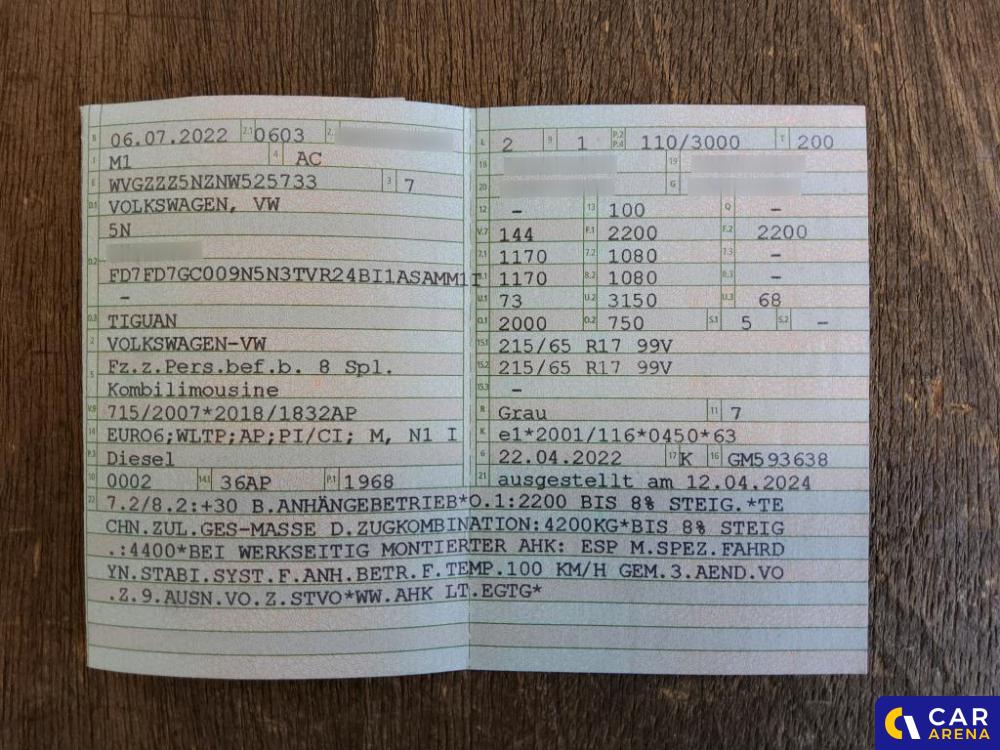 B 06.07.2022 2.1 0603 2.
J M1 4 AC
E WVGZZZ5NZNW525733 3 7
D.1 VOLKSWAGEN, VW
5N
D.2
FD7FD7GC009N5N3TVR24BI1ASAMM1T
-
D.3 TIGUAN
2 VOLKSWAGEN-VW
5 Fz.z.Pers.bef.b. 8 Spl.
Kombilimousine
V.9 715/2007*2018/1832AP
14 EURO6;WLTP;AP;PI/CI; M, N1 I
P.3 Diesel
10 0002 14.1 36AP P.1 1968
L 2 9 1 P.2 P.4 110/3000 T 200
18 19
20 G
12 - 13 100 Q -
V.7 144 F.1 2200 F.2 2200
7.1 1170 7.2 1080 7.3 -
8.1 1170 8.2 1080 8.3 -
U.1 73 U.2 3150 U.3 68
O.1 2000 O.2 750 S.1 5 S.2 -
15.1 215/65 R17 99V
15.2 215/65 R17 99V
15.3 -
R Grau 11 7
K e1*2001/116*0450*63
6 22.04.2022 17 K 16 GM593638
21 ausgestellt am 12.04.2024
22 7.2/8.2:+30 B.ANHÄNGEBETRIEB*O.1:2200 BIS 8% STEIG.*TE
CHN.ZUL.GES-MASSE D.ZUGKOMBINATION:4200KG*BIS 8% STEIG
.:4400*BEI WERKSEITIG MONTIERTER AHK: ESP M.SPEZ.FAHRD
YN.STABI.SYST.F.ANH.BETR.F.TEMP.100 KM/H GEM.3.AEND.VO
.Z.9.AUSN.VO.Z.STVO*WW.AHK LT.EGTG*
CAR
ARENA